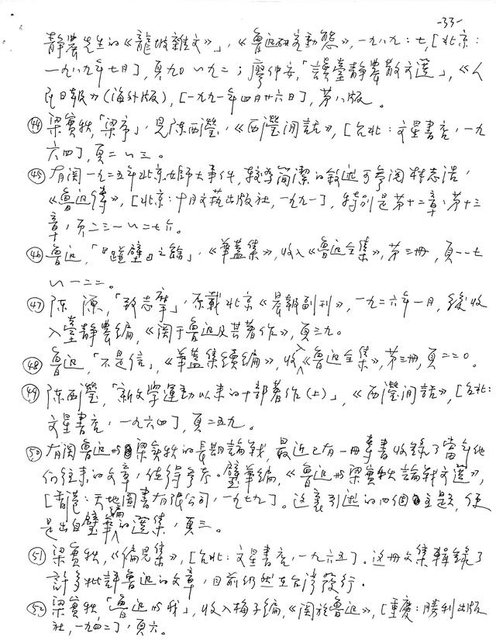 -33-
靜農先生的《龍坡雜文》」,《魯迅研究動態》,一九八九:七,[北京:
一九八九年七月],頁九〇~九二;廖仲安,「讀臺靜農散文選」,《人
民日報》(海外版),[一九九一年四月廿六日],第八版。
㊹ 梁實秋,「梁序」,見陳西瀅,《西瀅閒話》,[台北:文星書店,一九
六四],頁二~三。
㊺ 有關一九二五年北京女師大事件,較為簡潔的敘述可參閱林志浩,
《魯迅傳》,[北京:十月文藝出版社,一九九一],特別是第十二章,第十三
章,頁二三一~二七六。
㊻ 魯迅,「『碰壁』之餘」,《華蓋集》,收入《魯迅全集》,第三冊,頁一一七
~一二二。
㊼ 陳源,「致志摩」,原載北京《晨報副刊》,一九二六年一月,後收
入臺靜農編,《關于魯迅及其著作》,頁三九。
㊽ 魯迅,「不是信」,《華蓋集續編》,收入《魯迅全集》,第三冊,頁二二〇。
㊾ 陳西瀅,「新文學運動以來的十部著作(上)」,《西瀅閒話》,[台北:
文星書店,一九六四],頁二五九。
㊿ 有關魯迅與梁實秋的長期論戰,最近已有一冊專書收錄了當年他
們往來的文章,值得參考。璧華編,《魯迅與梁實秋論戰文選》,
[香港:天地圖書有限公司,一九七九]。這裏引述的四個主題,便
是出自璧華編的選集,頁三。
(51) 梁實秋,《偏見集》,[台北:文星書店,一九六五]。這冊文集輯錄了
許多批評魯迅的文章,目前仍然在台灣發行。
(52) 梁實秋「魯迅與我」,收入梅子編,《關於魯迅》,[重慶:勝利出版
社,一九四二],頁六。